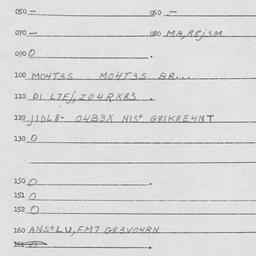 050 — 060 —
070 — 080 MA,R8j3M
090 0 .
100 M04T3S M04T3S BR...
110 D1 L7Fj,Z04RK83 .
120 J1DL8- 04B3X N1St G81K8E4NT
130 0
150 0 .
151 0
152 0
160 ANStLU,FM7 G83V04RN
161 0 .